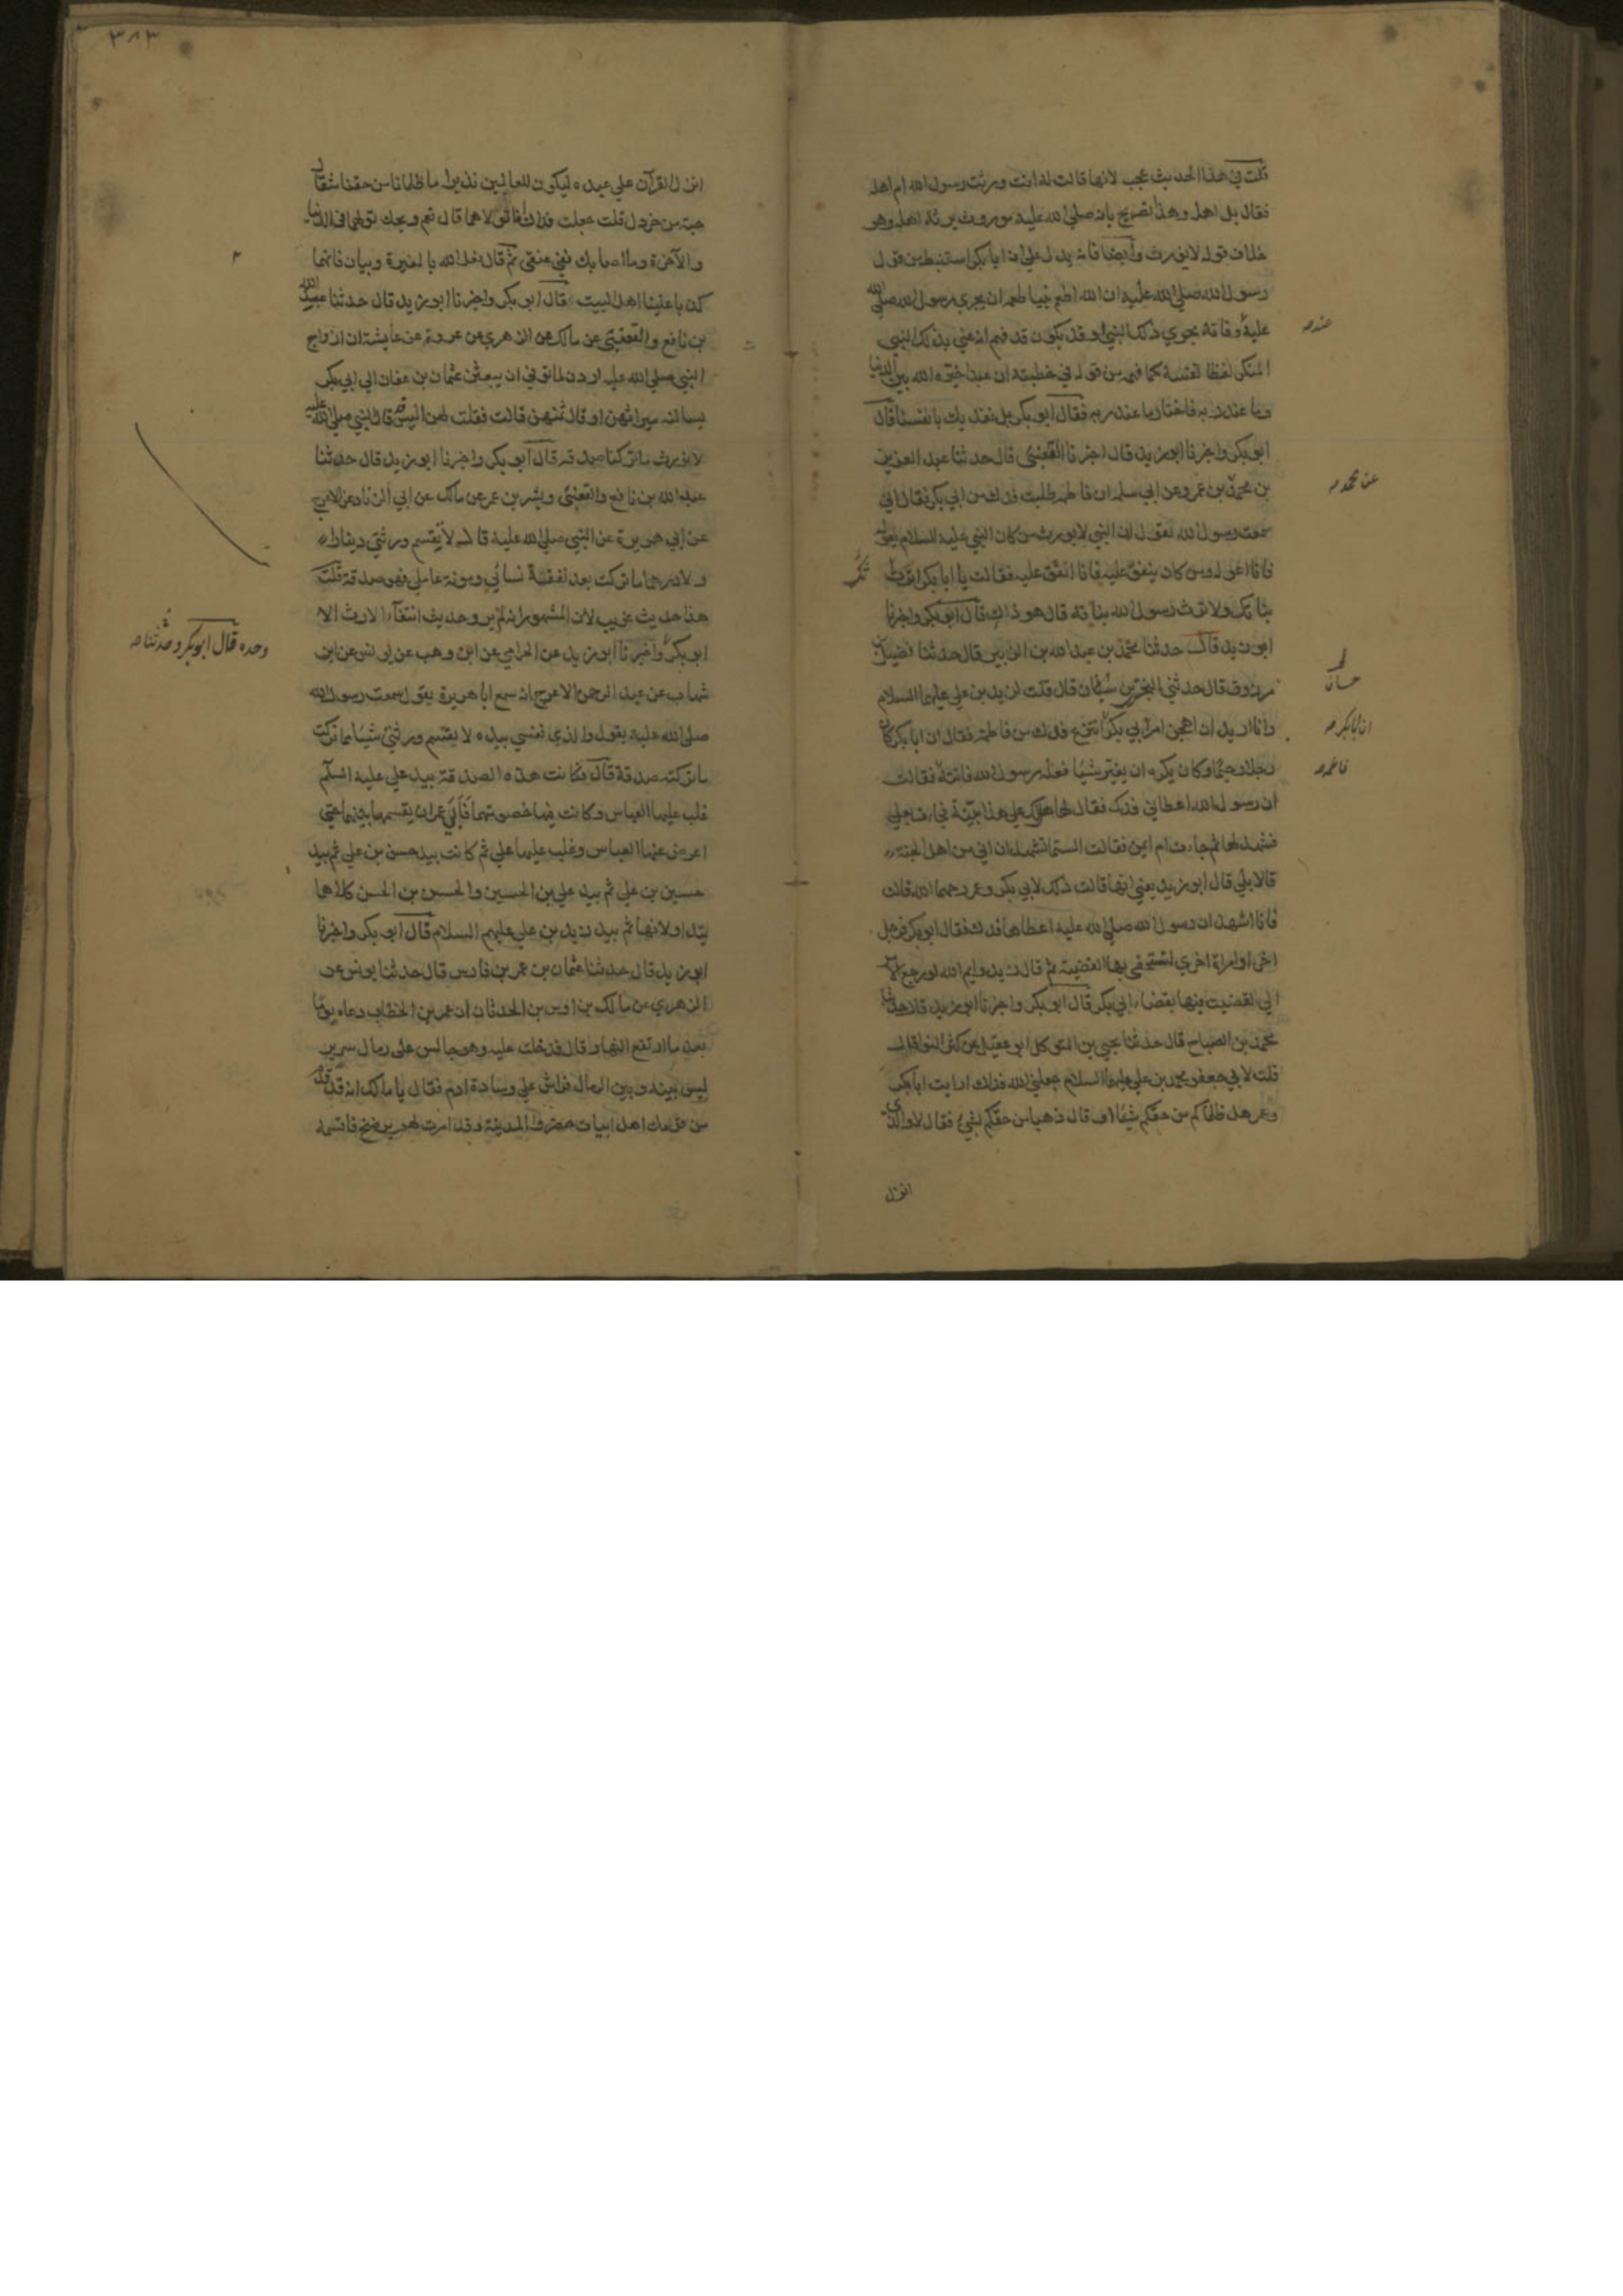 قلت في هذا الحديث عجب لانها قالت له انت ورثت رسول الله ام اهله
فقال بل اهله وهذا تصريح بانه صلى الله عليه موروث يرثه اهله وهو
خلاف قوله لا نورث وأيضا فانه يدل على ان ابا بكر استنبط من قول
رسول الله صلى الله عليه ان الله اطعم نبيا طعمه ان يجري رسول الله صلى الله
عليه وفاته مجرى ذلك النبي او قد يكون قد فهم انه عني بذلك النبي
المنكر لفظا نفسه كما فهم من قوله في خطبته ان عبدا خيره الله بين الدنيا
وما عند ربه فاختار ما عند ربه فقال ابو بكر بل نفديك بانفسنا قال
ابو بكر واخبرنا ابو زيد قال اخبرنا القعنبي قال حدثنا عبد العزيز
بن محمد بن عمرو عن ابي سلمه ان فاطمه طلبت فدك من ابي بكر فقال اني
سمعت رسول الله يقول ان النبي لا يورث من كان النبي عليه السلام يعوله
فانا اعوله ومن كان ينفق عليه فانا انفق عليه فقالت يا ابا بكر ايرثك
بناتك ولا ترث رسول الله بناته قال هو ذاك قال ابو بكر واخبرنا
ابو زيد قال حدثنا محمد بن عبد الله بن الزبير قال حدثنا فضيل بن
مرزوق قال حدثني البختري بن قال قلت لزيد بن علي عليهما السلام
وانا اريد ان اهجن امر ابي بكر انتزع فدك من فاطمة فقال ان ابا بكر كان
رجلا رحيما وكان يكره ان يغير شيئا فعله رسول الله فاتته فقالت
ان رسول الله اعطاني فدك فقال لها هل لك على هذا بينة فجاءت بعلي
فشهد لها ثم جاءت ام ايمن فقالت الستما تشهدان اني من اهل الجنة
قالا بلى قال ابو زيد يعني انها قالت ذلك لابي بكر وعمر رحمهما الله قالت
فانا اشهد ان رسول الله صلى الله عليه اعطاها فدك فقال ابو بكر فرجل
اخر او امراة اخرى لتستحقي بها القضية ثم قال زيد وايم الله لو رجع الامر
الي لقضيت فيها بقضاء ابي بكر قال ابو بكر واخبرنا ابو زيد قال حدثنا
محمد بن الصباح قال حدثنا يحيى بن المتوكل ابو عقيل عن كثير النوا قال
قلت لابي جعفر محمد بن علي عليهما السلام جعلني الله فداك ارايت ابا بكر
وعمر هل ظلماكم من حقكم شيئا او قال ذهبا من حقكم بشيء فقال لا والذي
انزل
عنده
عن محمد
حسان
ان ابا بكر
فاطمه
٣٨٣
انزل القرآن على عبده ليكون للعالمين نذيرا ما ظلمانا من حقنا مثقال
حبة من خردل قلت جعلت فداك افاتولاهما قال نعم ويحك تولهما في الدنيا
والآخرة وما اصابك ففي عنقي ثم قال فعل الله بالمغيرة وبيان فانهما
كذبا علينا اهل البيت قال ابو بكر واخبرنا ابو زيد قال حدثنا عبد الله
بن نافع والقعنبي عن مالك عن الزهري عن عروة عن عايشة ان ازواج
النبي صلى الله عليه اردن لما توفي ان يبعثن عثمان بن عفان الي ابي بكر
يسالنه ميراثهن او قال ثمنهن قالت فقلت لهن اليس قد قال النبي صلى الله عليه
لا نورث ما تركنا صدقه قال ابو بكر واخبرنا ابو زيد قال حدثنا
عبد الله بن نافع والقعنبي وبشر بن عمر عن مالك عن ابي الزناد عن الاعرج
عن ابي هريرة عن النبي صلى الله عليه قال لا يقسم ورثتي دينارا
ولا درهما ما تركت بعد نفقة نسائي ومونة عاملي فهو صدقة قلت
هذا حديث غريب لان المشهور انه لم يرو حديث انتفاء الارث الا
ابو بكر واخبرنا ابو زيد عن الحزامي عن ابن وهب عن يونس عن ابن
شهاب عن عبد الرحمن الاعرج انه سمع ابا هريرة يقول سمعت رسول الله
صلى الله عليه يقول والذي نفسي بيده لا يقسم ورثتي شيئا مما تركت
ما تركته صدقة قال فكانت هذه الصدقة بيد علي عليه السلم
غلب عليها العباس وكانت فيها خصومتهما فأبى عمر ان يقسمها بينهما حتى
اعرض عنها العباس وغلب عليها علي ثم كانت بيد حسن بن علي ثم بيد
حسين بن علي ثم بيد علي بن الحسين والحسن بن الحسن كلاهما
يتداولانها ثم بيد زيد بن علي عليهم السلام قال ابو بكر واخبرنا
ابو زيد قال حدثنا عثمان بن عمر بن فارس قال حدثنا يونس عن
الزهري عن مالك بن اوس بن الحدثان ان عمر بن الخطاب دعاه يوما
بعد ما ارتفع النهار قال فدخلت عليه وهو جالس على رمال سرير
ليس بينه وبين الرمال فراش على وسادة ادم فقال يا مالك انه قد قدم
من قومك اهل ابيات حضروا المدينة وقد امرت لهم برضخ فاقسمه
وحده قال ابو بكر وحدثنا